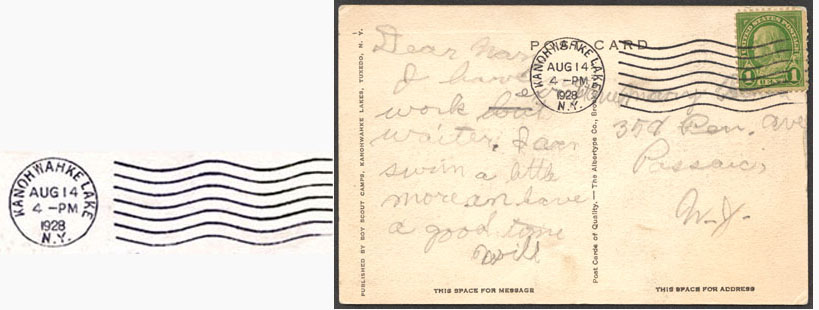 KANOHWAHKE LAKE
AUG 14
4-PM
1928
N.Y.
POST CARD
KANOHWAHKE LAKE
AUG 14
4-PM
1928
N.Y.
UNITED STATES POSTAGE
1 1
PUBLISHED BY BOY SCOUT CAMPS, KANOHWAHKE LAKES, TUXEDO, N. Y.
Dear
I have
work
writer. I can
swim a little
more an have
a good time
Will
Post Cards of Quality. — The Albertype Co.,
Mary
358 Pen. Ave
Passaic,
N.J.
THIS SPACE FOR MESSAGE
THIS SPACE FOR ADDRESS